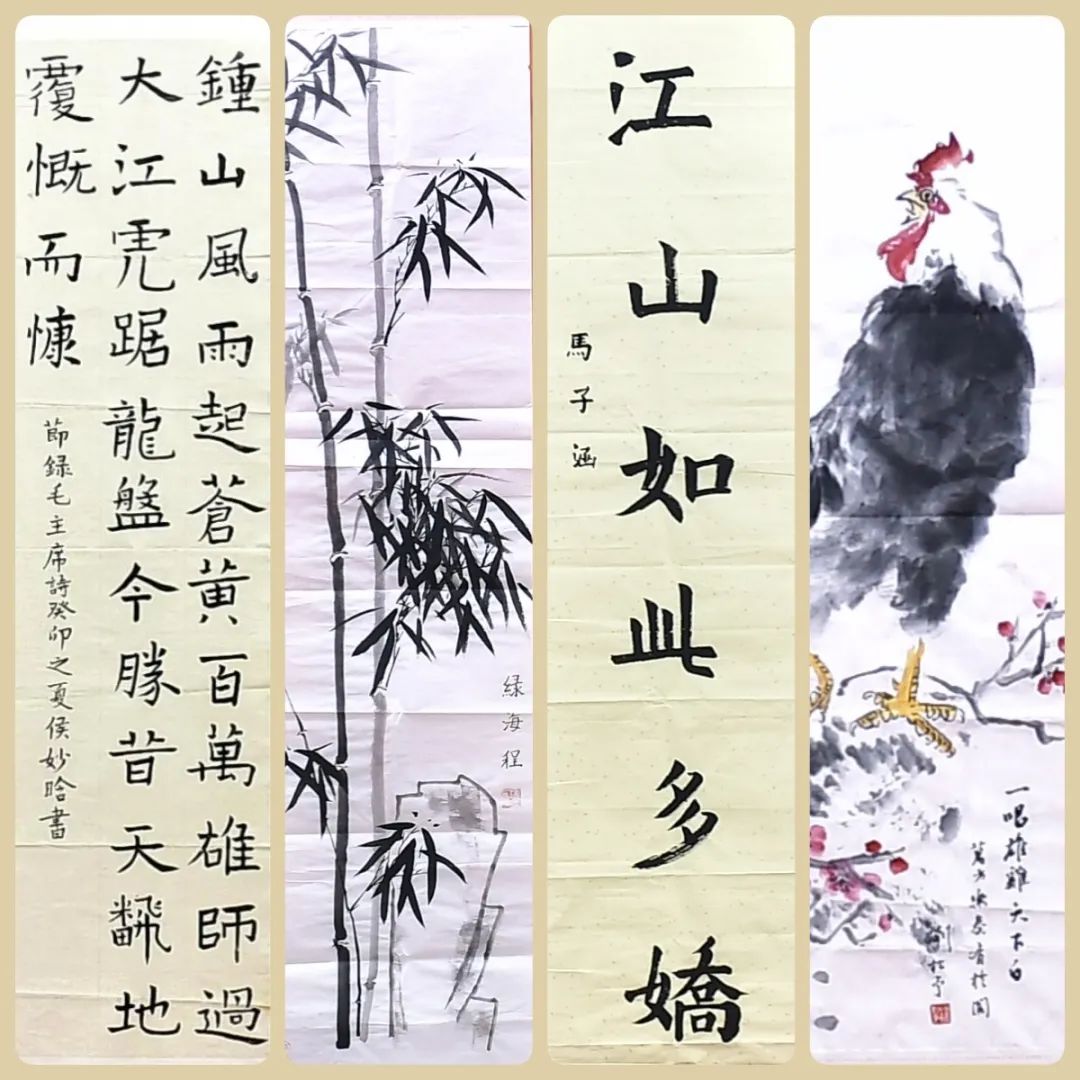 鍾山風雨起蒼黃百萬雄師過
大江虎踞龍盤今勝昔天飜地
覆慨而慷
節錄毛主席詩癸卯之夏侯妙晗書
绿海程
江山如此多嬌
馬子涵
一唱雄雞天下白